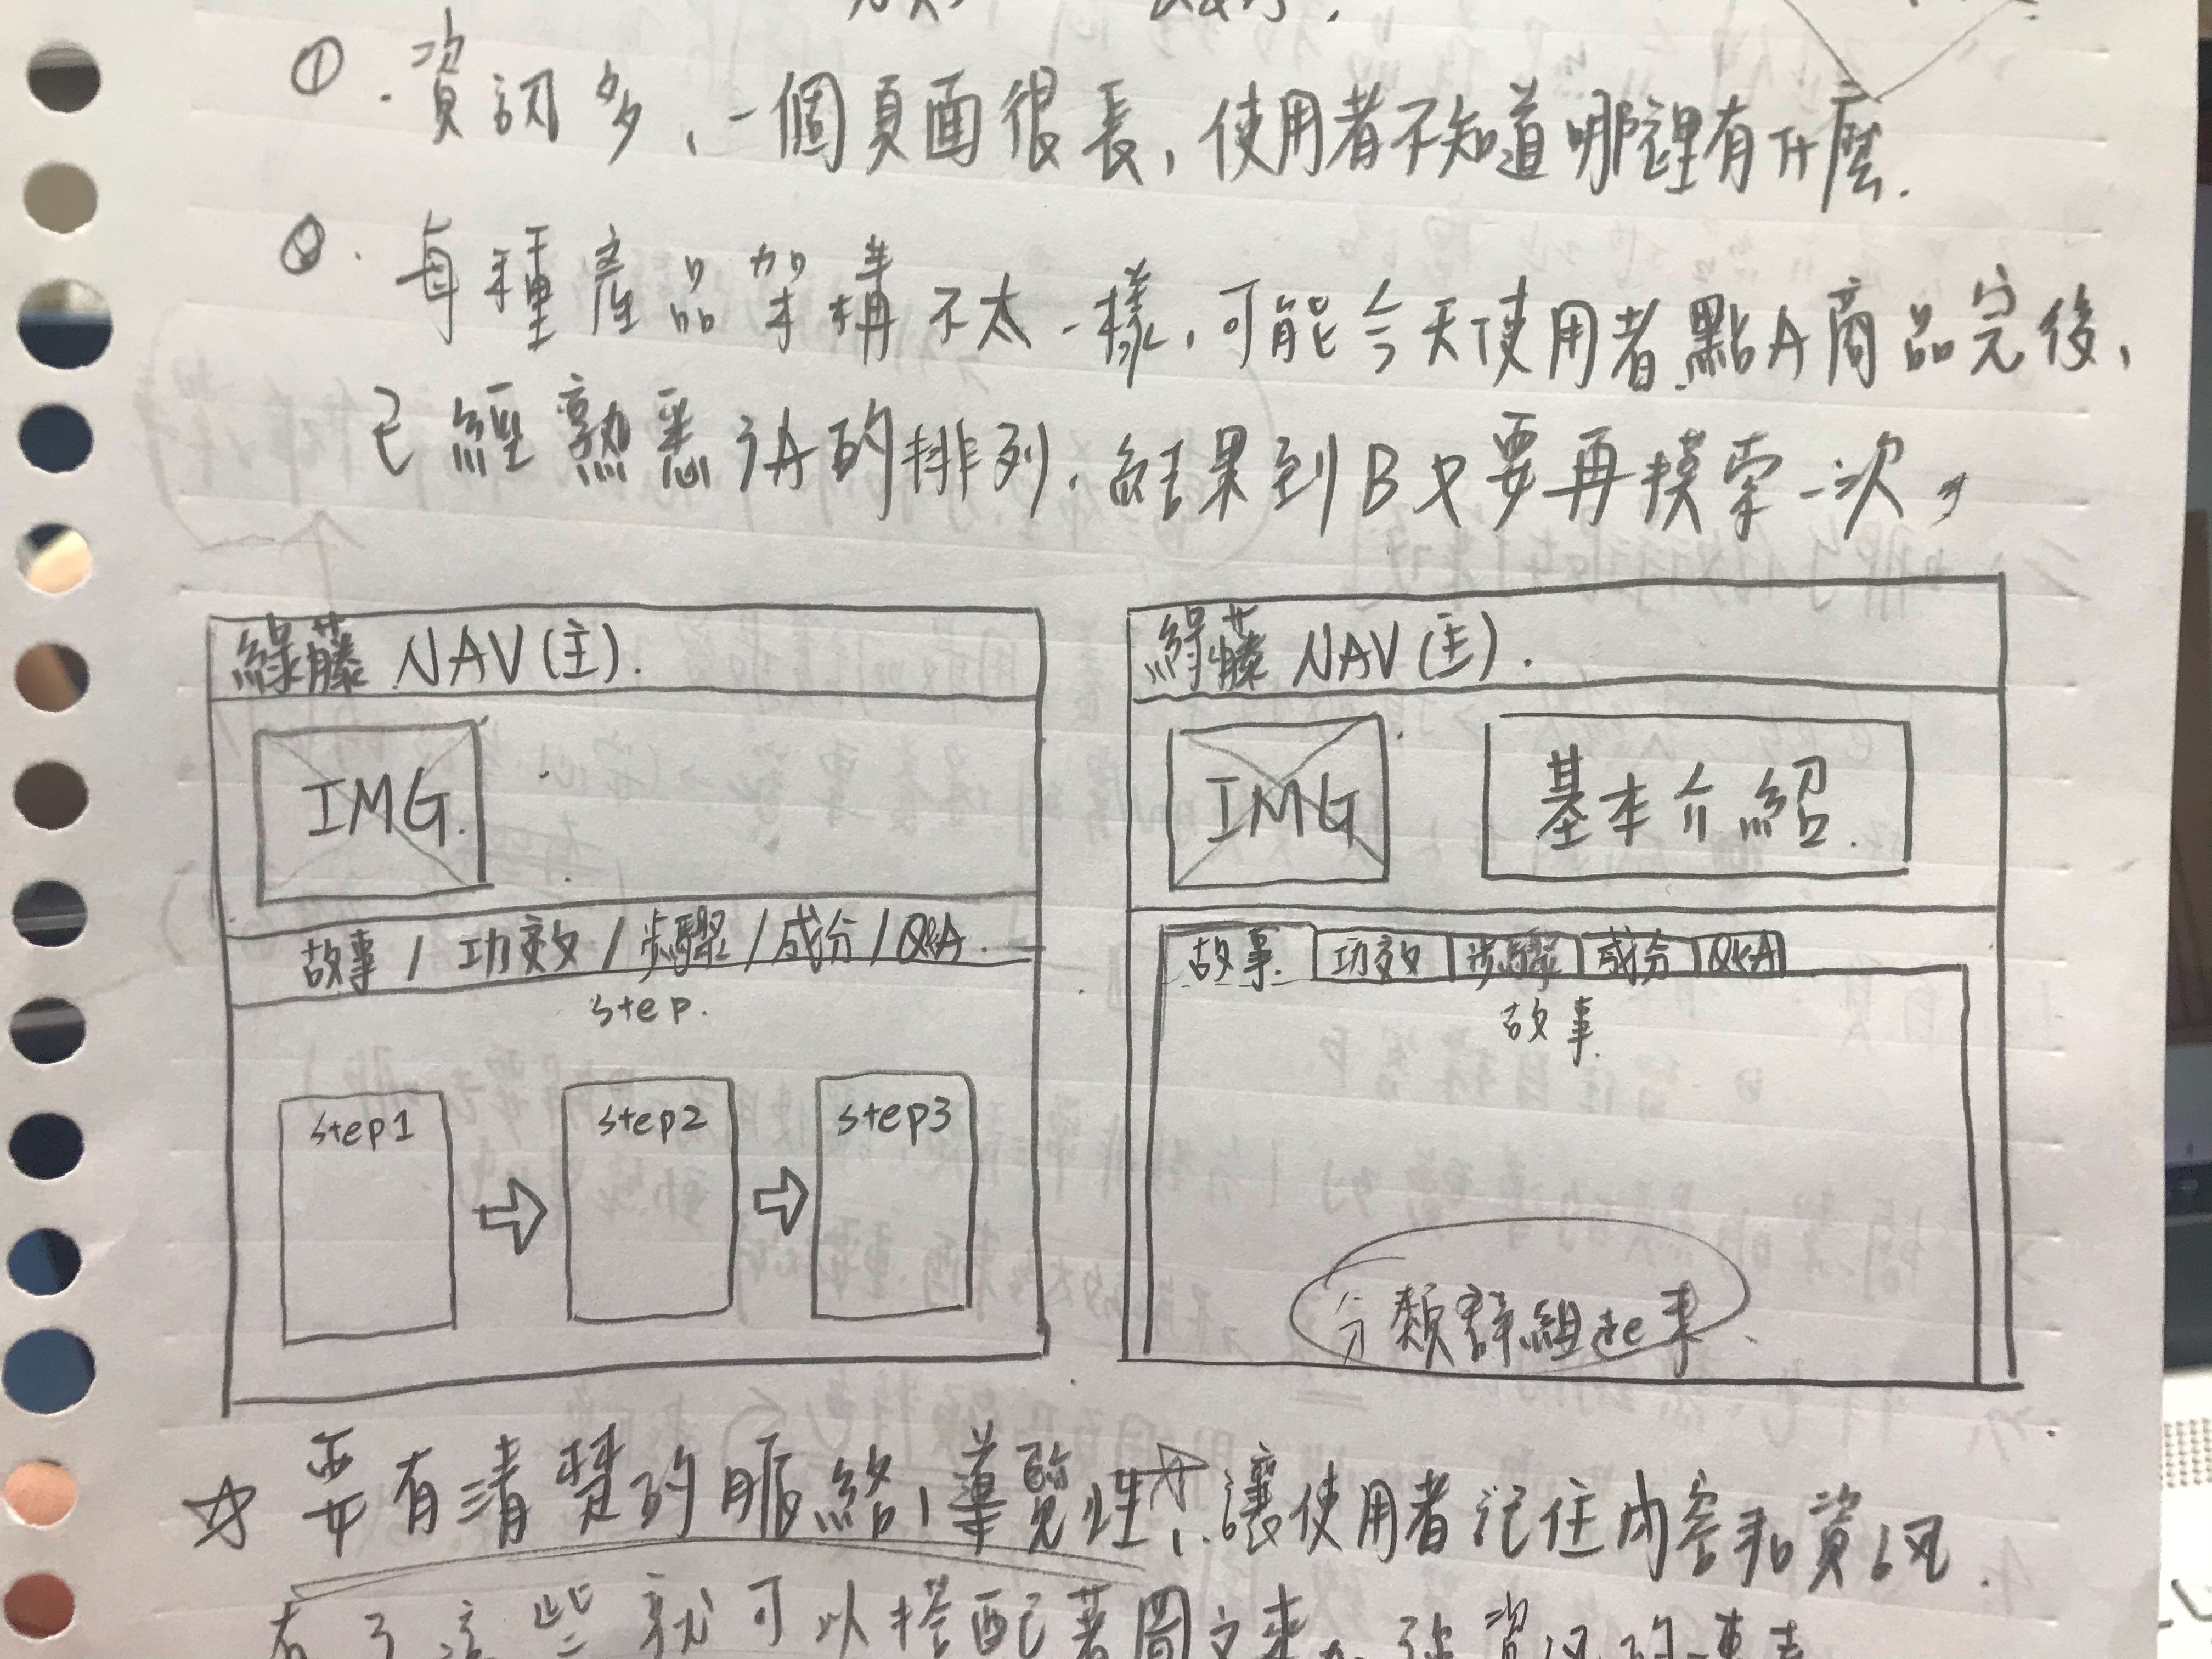 ① . 資訊多、一個頁面很長，使用者不知道哪裡有什麼.
②. 每種產品架構不太一樣，可能今天使用者點A商品完後，
已經熟悉A的排列，結果到B又要再摸索一次，
綠藤 NAV(主).
IMG.
故事 / 功效 / 步驟 / 成分 / Q&A.
step.
step1
step2
step3
綠藤 NAV(主).
IMG
基本介紹.
故事. 功效 步驟 成分 Q&A
故事.
分類群組起來
☆ 要有清楚的脈絡，導覽性↑，讓使用者記住內容和資訊.
有了這些就可以搭配著圖文來